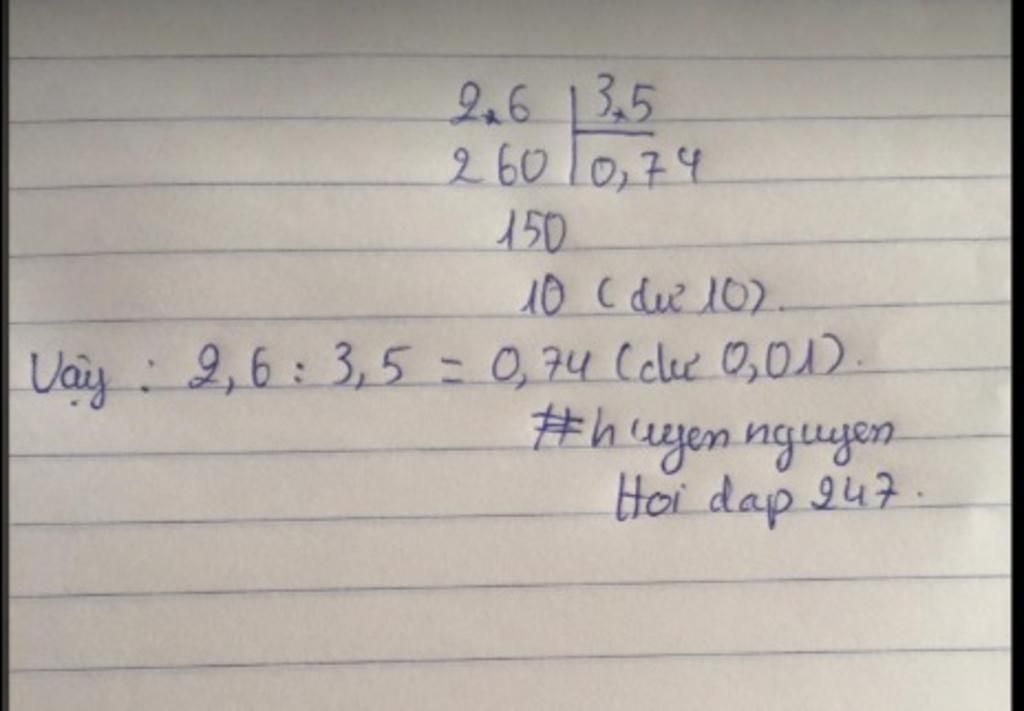 2,6 | 3,5
260 | 0,74
150
10 (dư 10).
Vậy : 2,6 : 3,5 = 0,74 (dư 0,01).
#huyen nguyen
Hoi dap 247.